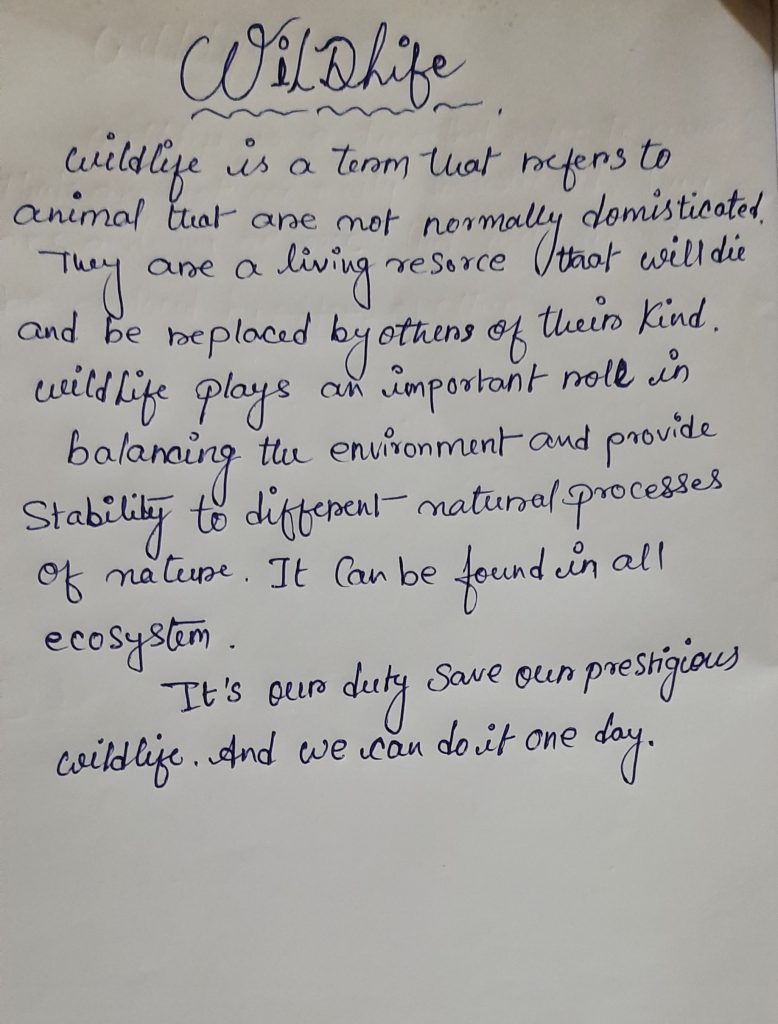 WilDlife
wildlife is a term that refers to
animal that are not normally domisticated.
They are a living resorce that will die
and be replaced by others of their kind.
wildlife plays an important role in
balancing the environment and provide
Stability to different natural processes
of nature. It can be found in all
ecosystem.
It's our duty save our prestigious
wildlife. And we can do it one day.